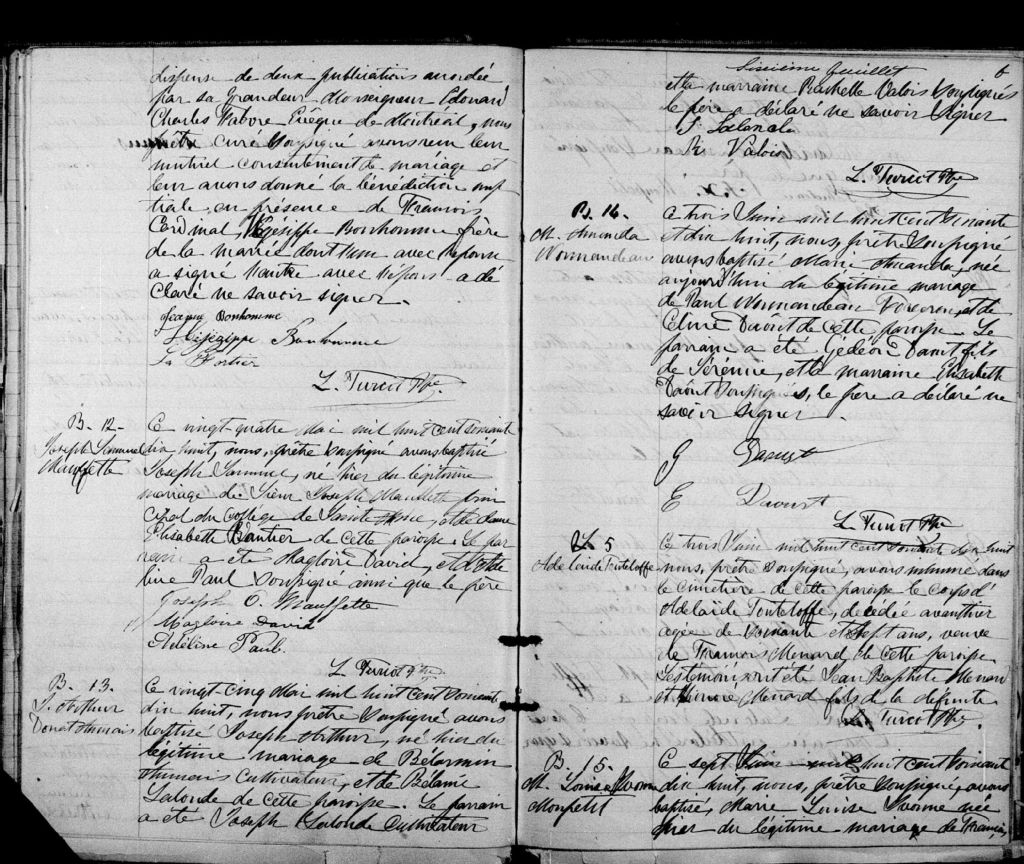 dispense de deux publications accordée
par sa Grandeur Monseigneur Edouard
Charles Fabre Evêque de Montréal, nous
prêtre curé soussigné avons reçu leur
mutuel consentement de mariage et
leur avons donné la bénédiction nup
tiale en présence de François
Cardinal, Hégésippe Bonhomme frère
de la mariée dont l'un avec l'épouse
a signé l'autre avec l'époux a dé
claré ne savoir signer.
Bonhomme
Hégésippe Bonhomme
L. Turcot Ptre
B. 12.
Joseph Samuel
Mauffette
Ce vingt-quatre Mai mil huit cent soixante
dix huit, nous, prêtre soussigné avons baptisé
Joseph Samuel, né hier du légitime
mariage de Sieur Joseph Mauffette prin
cipal du College de Sainte Anne, et de Dame
Elisabeth de cette paroisse. Le par
rain a été Magloire David, et
Paul soussignés ainsi que le père
Joseph O. Mauffette
Magloire David
Adéline Paul.
L. Turcot Ptre
B. 13.
J. Arthur
Donat
Ce vingt-cinq Mai mil huit cent soixante
dix huit, nous prêtre soussigné avons
baptisé Joseph Arthur, né hier du
légitime mariage de
Cultivateur, et de
Lalonde de cette paroisse. Le parrain
a été Joseph Lalonde Cultivateur
Sixième feuillet
6
et la marraine Rachelle Valois soussignés
le père a déclaré ne savoir signer
J. Lalonde
R. Valois
L. Turcot Ptre
B. 14.
M. Amanda
Normandeau
Ce trois Juin mil huit cent soixante
et dix huit, nous, prêtre soussigné
avons baptisé Marie Amanda, née
aujourd'hui du légitime mariage
de Paul Normandeau et de
Daôut de cette paroisse. Le
parrain a été Gédéon Daout fils
de Jérémie, et la marraine Elizabeth
Daôut soussignés, le père a déclaré ne
savoir signer.
G Daoust
E Daoust
L. Turcot Ptre
S 5
Adelaide
Ce trois Juin mil huit cent soixante dix huit
nous, prêtre soussigné, avons inhumé dans
le cimetière de cette paroisse le corps d'
Adelaide, décédée avant hier
agée de soixante et sept ans, veuve
de François Menard, de cette paroisse
Les témoins ont été Jean Baptiste Menard
et Menard fils de la défunte
L. Turcot Ptre.
B. 15.
M. Louise Yvonne
Monpetit
Ce sept Juin mil huit cent soixante
dix huit, nous, prêtre soussigné, avons
baptisé, Marie Louise Yvonne née
hier du légitime mariage de François